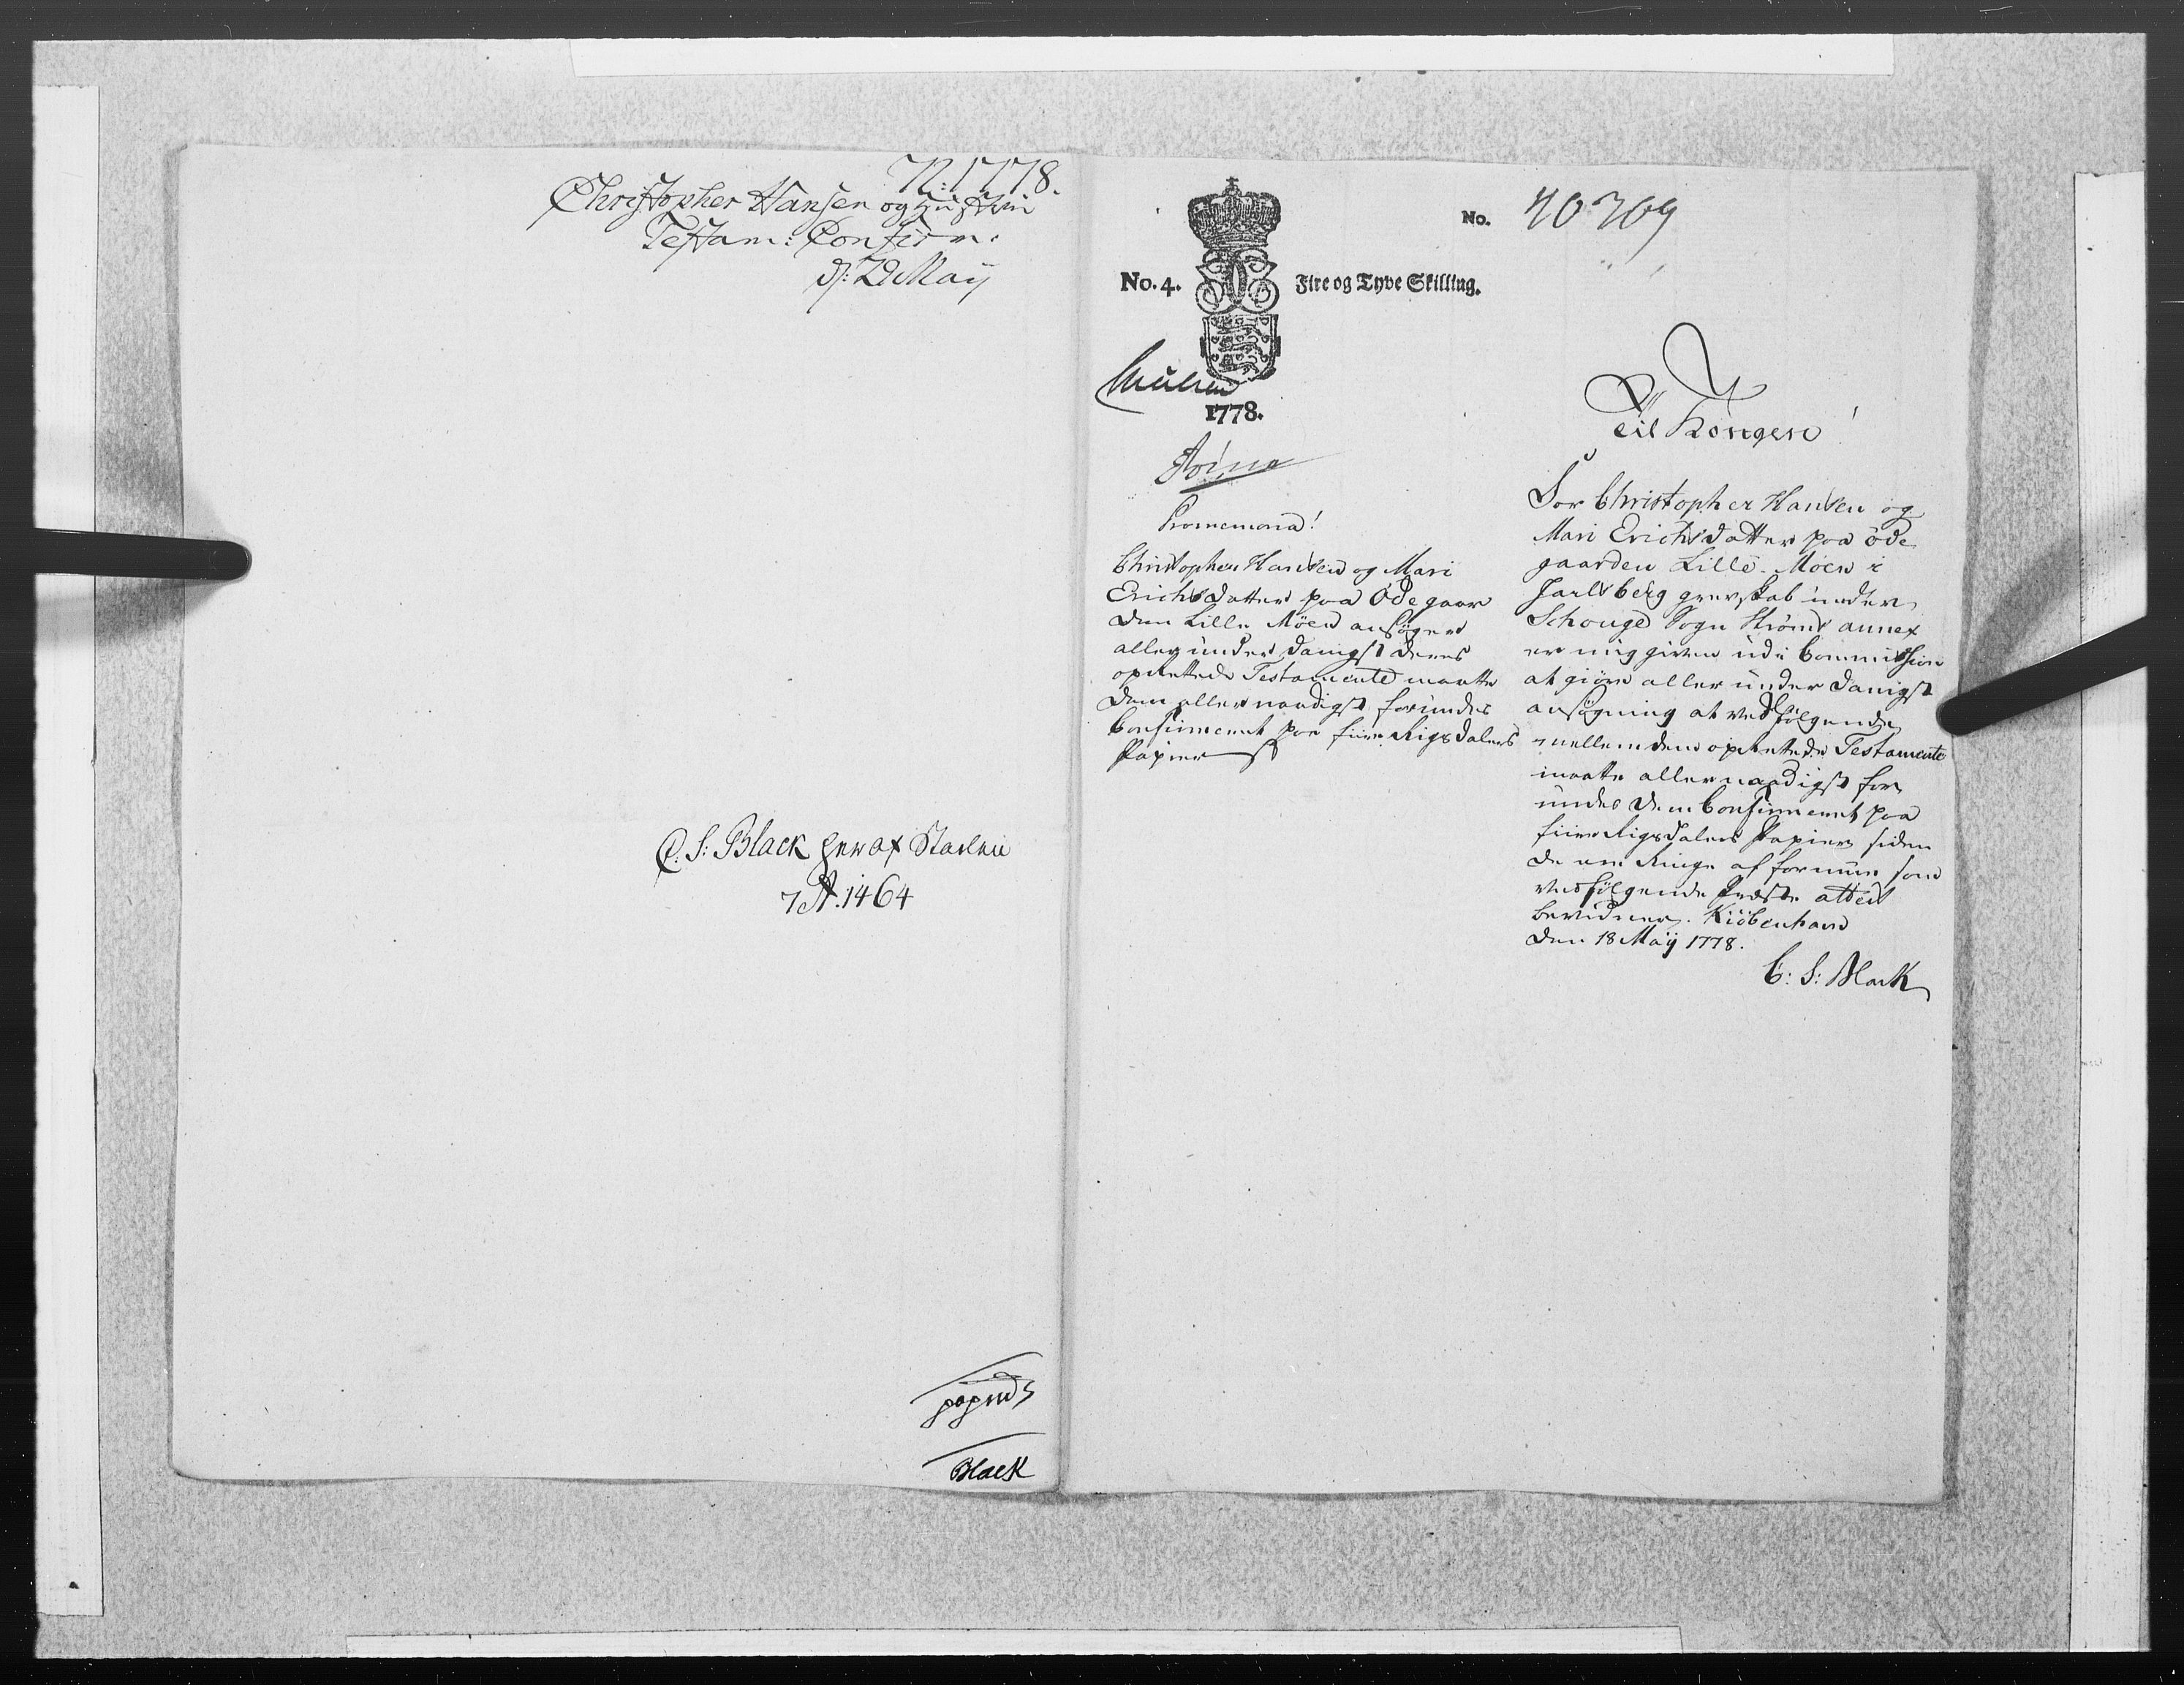 N: 1778.
Christopher Hansen og Hustrue
Testam: Confirm:
d: 29 Maij
C: S: Black
7 A. 1464
Black
No. 4. Fire og Tyve Skilling.
No. 40709
1778.
Promemoria!
Christopher Hansen og Mari
Erichsdatter paa Ödegaar
den Lille Möen ansöger
allerunderdanigst deres
oprettede Testamente maatte
dem allernaadigst forundes
Confirmeret paa fiire Rigsdalers
Papier
Til Kongen!
For Christopher Hansen og
Mari Erichsdatter paa öde
gaarden Lille Möen i
Jarlsberg grevskab under
Schouge Sogn Ströms annex
er mig given udi Commission
at giöre allerunderdanigst
ansögning at vedfölgende
mellem dem oprettede Testamente
maatte allernaadigst for
undes dem Confirmeret paa
fiire Rigsdalers Papier siden
de ere Ringe af formue som
vedfölgende Præste attest
bevidner. Kiöbenhavn
den 18 Maij 1778.
C: S: Black